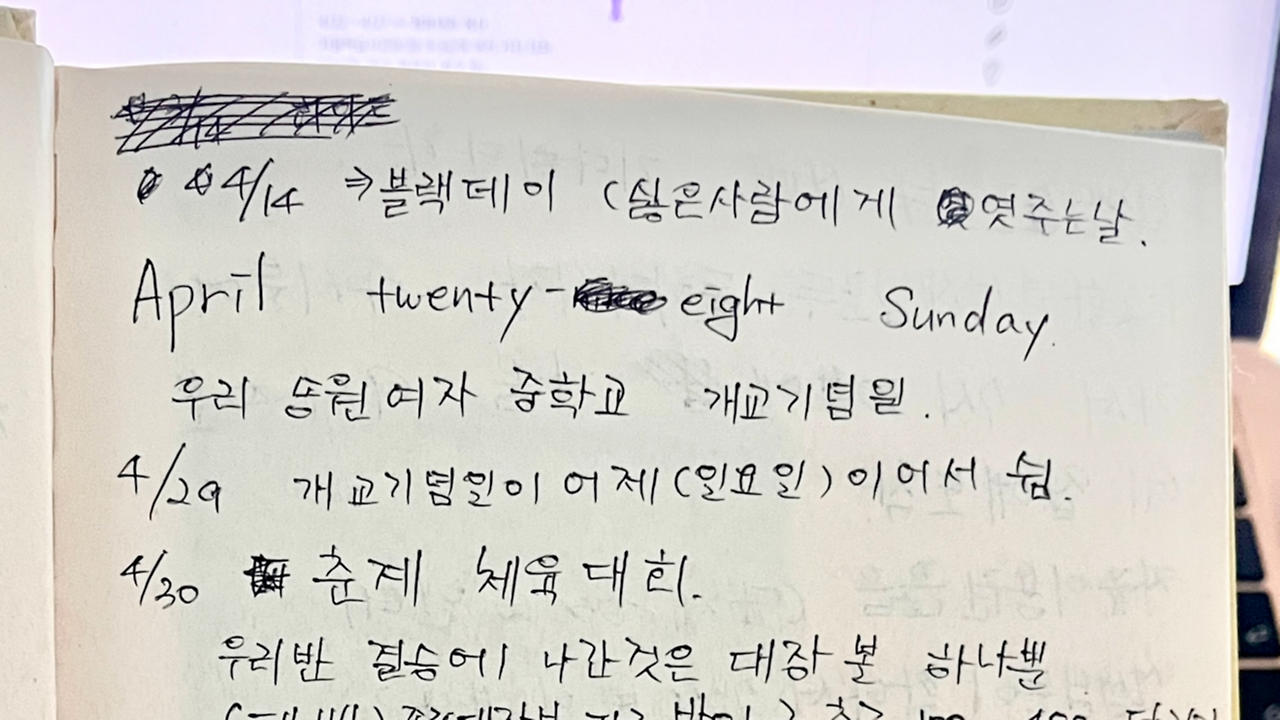 4/14 ⇒ 블랙데이 (싫은사람에게 엿주는날.
April twenty- eight Sunday.
우리 송원여자 중학교 개교기념일.
4/29 개교기념일이 어제(일요일)이어서 쉼.
4/30 춘계 체육대회.
우리반 결승에 나간것은 대장 볼 하나뿐